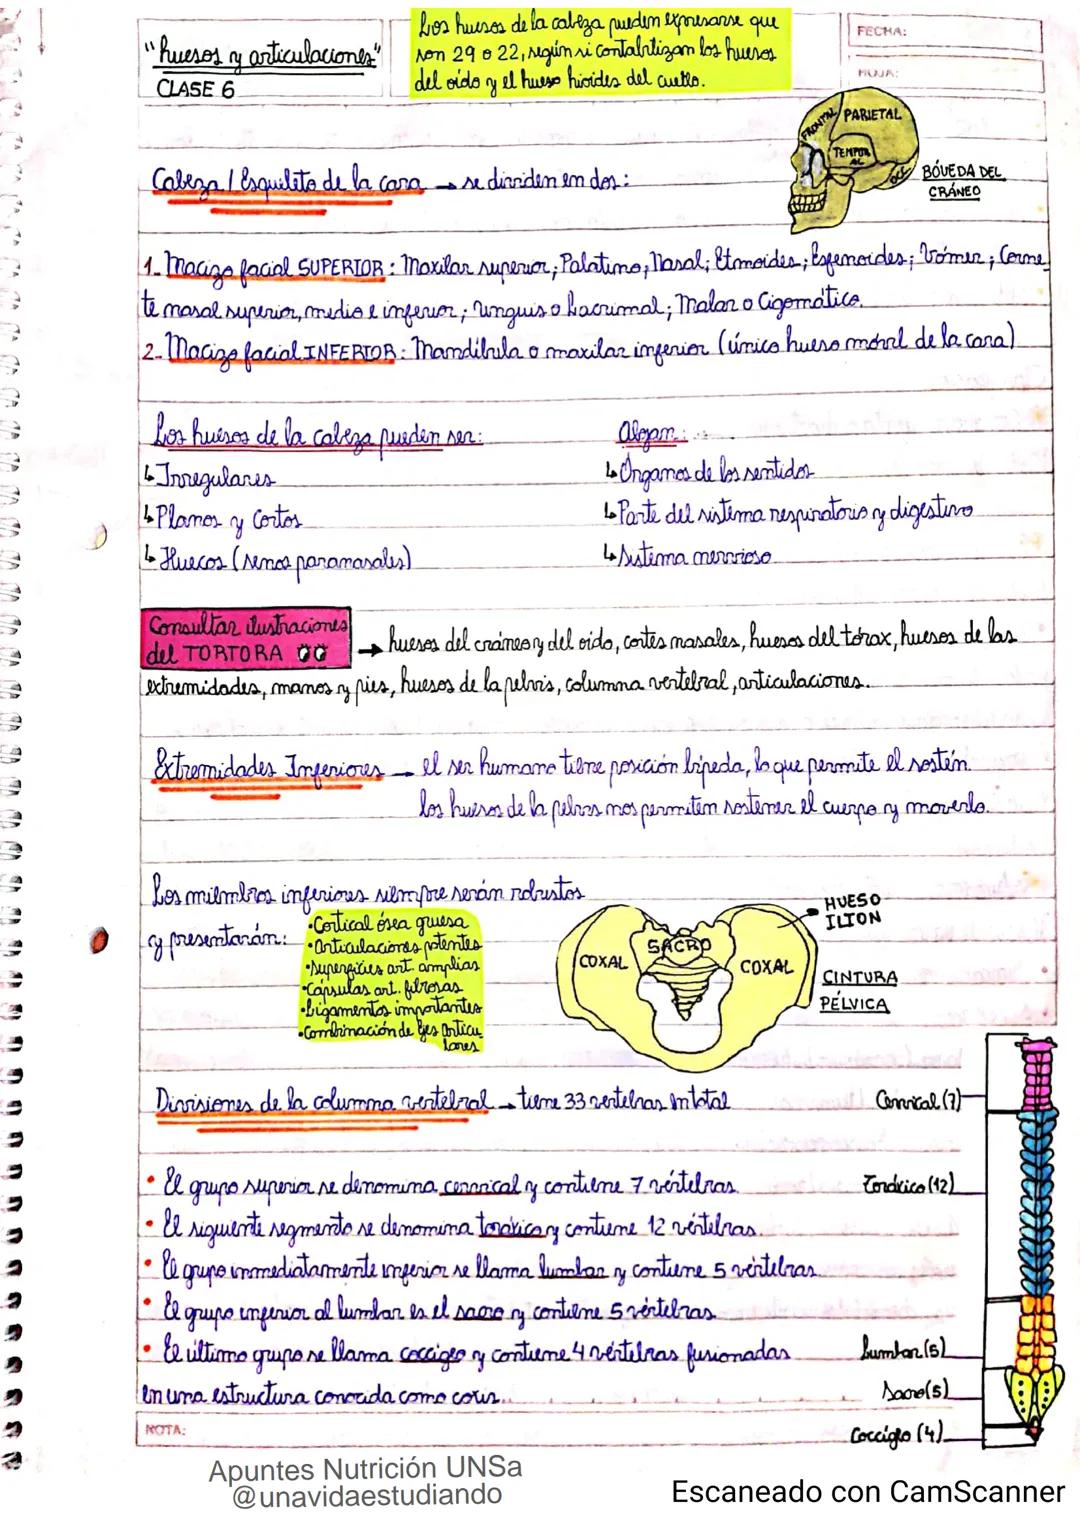 "huesos y articulaciones"
CLASE 6
Los huesos de la cabeza pueden expresarse que
son 29 o 22, según si contabilizan los huesos
del oído y el hueso hioides del cuello.
FECHA:
HOJA:
FRONTAL
PARIETAL
TEMPOR
AL
OCC
BÓVEDA DEL
CRÁNEO
Cabeza / Esqueleto de la cara → se dividen en dos:
1_ Macizo facial SUPERIOR: Maxilar superior; Palatino; Nasal; Etmoides; Esfenoides; Vómer; Corne_
te nasal superior, medio e inferior; Unguis o Lacrimal; Malar o Cigomático.
2_ Macizo facial INFERIOR: Mandíbula o maxilar inferior (único hueso móvil de la cara)
Los huesos de la cabeza pueden ser:
↳ Irregulares
↳ Planos y Cortos
↳ Huecos (senos paranasales)
Alojan:
↳ Órganos de los sentidos
↳ Parte del sistema respiratorio y digestivo
↳ Sistema nervioso
Consultar ilustraciones
del TORTORA
→ huesos del cráneo y del oído, cortes nasales, huesos del tórax, huesos de las
extremidades, manos y pies, huesos de la pelvis, columna vertebral, articulaciones.
Extremidades Inferiores → el ser humano tiene posición bípeda, lo que permite el sostén.
los huesos de la pelvis nos permiten sostener el cuerpo y moverlo.
Los miembros inferiores siempre serán robustos
y presentarán:
• Cortical ósea gruesa
• Articulaciones potentes
• Superficies art. amplias
• Cápsulas art. fibrosas
• Ligamentos importantes
• Combinación de Ejes Articu_
lares
COXAL
SACRO
COXAL
HUESO
ILION
CINTURA
PÉLVICA
Divisiones de la columna vertebral → tiene 33 vertebras en total
• El grupo superior se denomina cervical y contiene 7 vértebras.
• El siguiente segmento se denomina torático y contiene 12 vértebras.
• El grupo inmediatamente inferior se llama lumbar y contiene 5 vértebras.
• El grupo inferior al lumbar es el sacro y contiene 5 vértebras.
• El último grupo se llama coccígeo y contiene 4 vértebras fusionadas
en una estructura conocida como coxis.
Cervical (7)
Torácico (12)
Lumbar (5)
Sacro (5)
Coccígeo (4)
NOTA:
Apuntes Nutrición UNSa
@unavidaestudiando
Escaneado con CamScanner